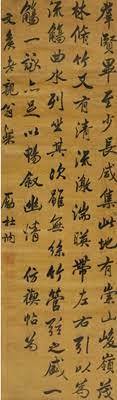 羣賢畢至少長咸集此地有崇山峻嶺茂
林脩竹又有清流激湍暎帶左右引以為
流觴曲水列坐其次雖無絲竹管弦之盛一
觴一詠亦足以暢敘幽情 仿禊帖為
老親翁 杜訥